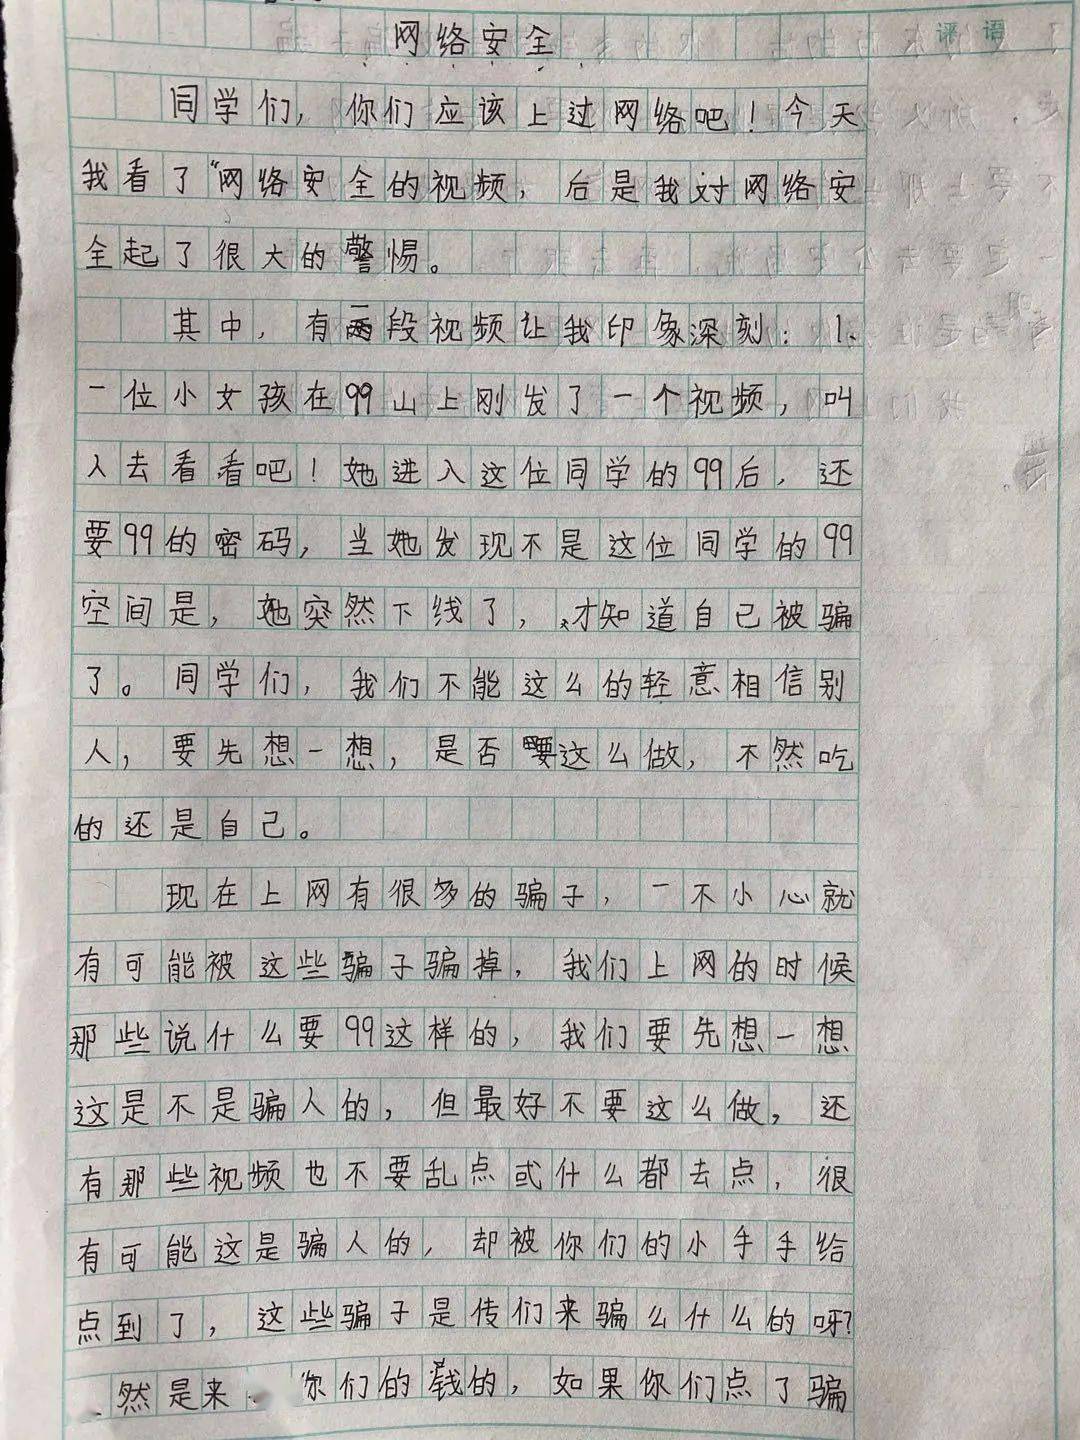 网络安全
评语
同学们，你们应该上过网络吧！今天
我看了“网络安全的视频，后是我对网络安
全起了很大的警惕。
其中，有两段视频让我印象深刻：1、
一位小女孩在99山上刚发了一个视频，叫
人去看看吧！她进入这位同学的99后，还
要99的密码，当她发现不是这位同学的99
空间是，她突然下线了，才知道自己被骗
了。同学们，我们不能这么的轻意相信别
人，要先想一想，是否要这么做，不然吃
的还是自己。
现在上网有很多的骗子，一不小心就
有可能被这些骗子骗掉，我们上网的时候
那些说什么要99这样的，我们要先想一想
这是不是骗人的，但最好不要这么做，还
有那些视频也不要乱点或什么都去点，很
有可能这是骗人的，却被你们的小手手给
点到了，这些骗子是传们来骗么什么的呀？
然是来 你们的钱的，如果你们点了骗